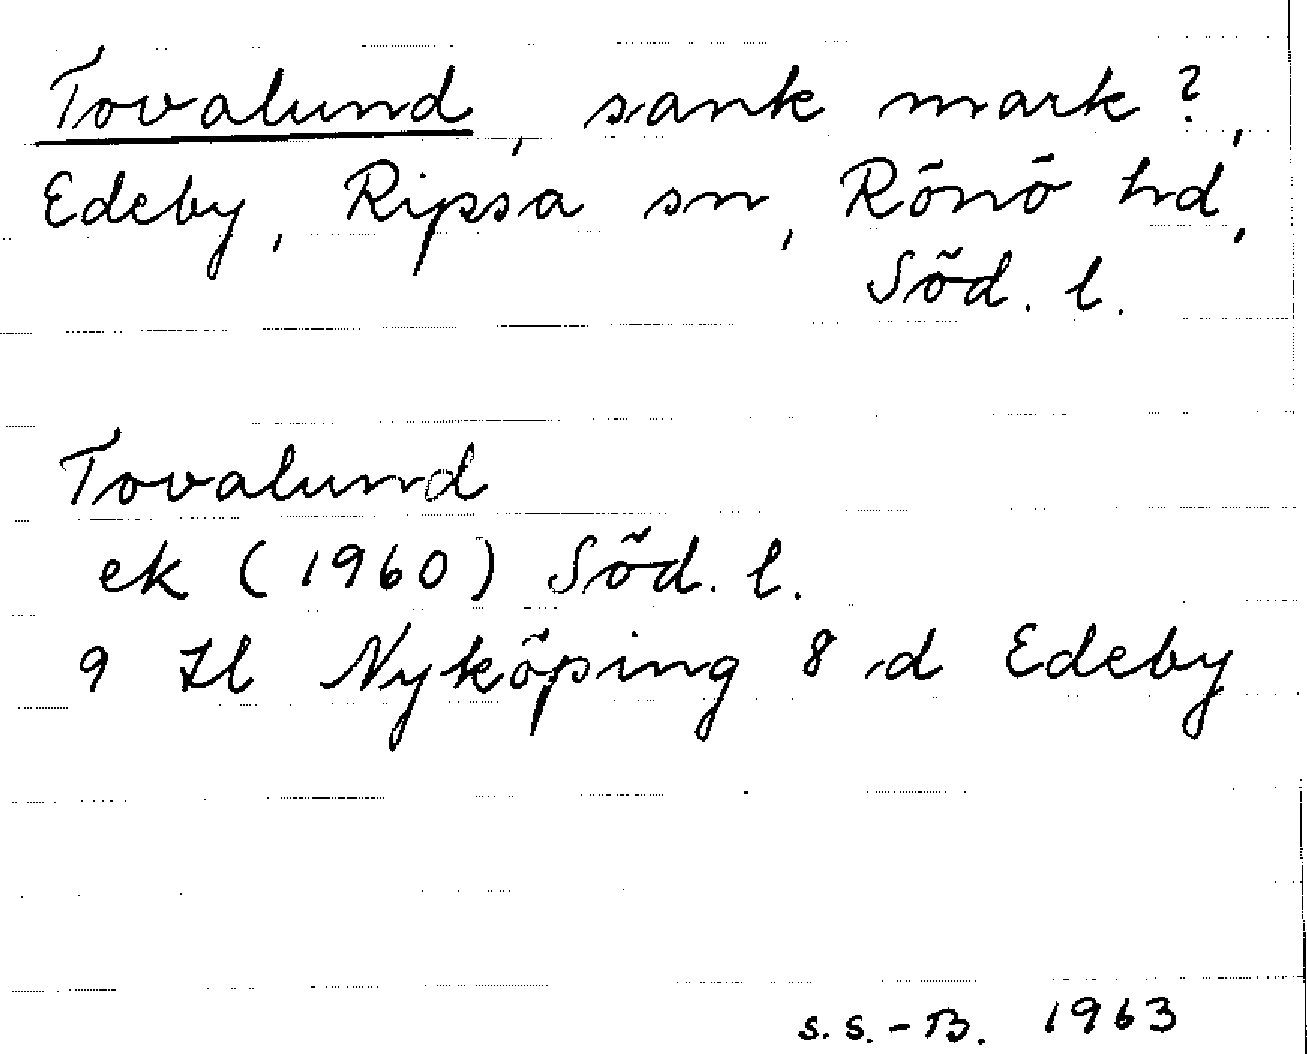 Tovalund, sank mark?,
Edeby, Ripsa sn, Rönö hd,
Söd. l.
Tovalund
ek (1960) Söd. l.
9 Il Nyköping 8 d Edeby
S. S.-B. 1963